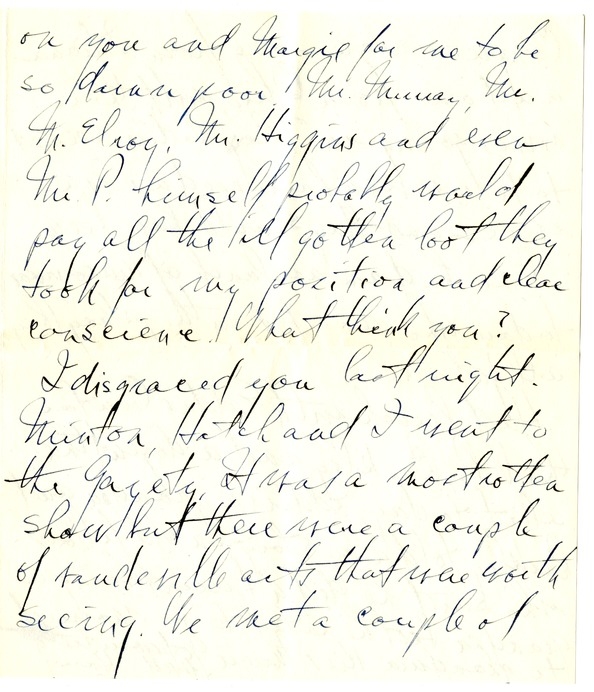 on you and Margie for me to be
so damn poor. Mr. Murray, Mr.
M. Elroy, Mr. Higgins and even
Mr. P. himself probally would
pay all the ill gotten loot they
took for my position and clear
conscience. What think you?
I disgraced you last night.
Minton, Hatch and I went to
the Gayety. It was a most rotten
show but there were a couple
of vaudeville acts that were worth
seeing. We met a couple of